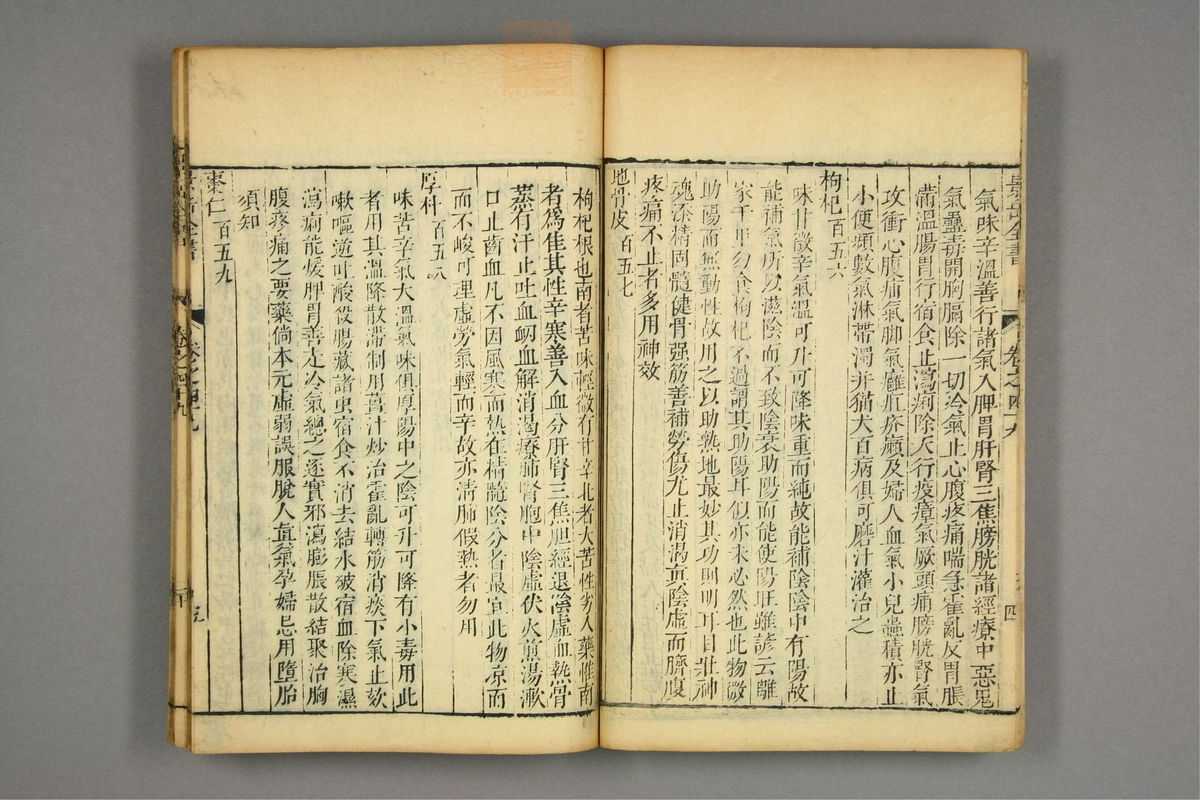 景岳全書 卷之四十九 四
氣味辛溫善行諸氣入脾胃肝腎三焦膀胱諸經療中惡鬼
氣蠱毒開胸膈除一切冷氣止心腹疼痛喘急霍亂反胃脹
滿溫腸胃行宿食止瀉痢除天行疫瘴氣厥頭痛膀胱腎氣
攻衝心腹疝氣脚氣難疘疥癩及婦人血氣小兒蟲積亦止
小便頻數氣淋帶濁并猫犬百病俱可磨汁灌治之
枸杞百五六
味甘微辛氣溫可升可降味重而純故能補陰陰中有陽故
能補氣所以滋陰而不致陰衰助陽而能使陽旺雖諺云離
家千里勿食枸杞不過謂其助陽耳似亦未必然也此物微
助陽而無動性故用之以助熟地最妙其功則明耳目壯神
魂添精固髓健骨强筋善補勞傷尤止消渴真陰虛而臍腹
疼痛不止者多用神效
地骨皮百五七
枸杞根也南者苦味輕微有甘辛北者大苦性劣入藥惟南
者爲佳其性辛寒善入血分肝腎三焦胆經退陰虛血熱骨
蒸有汗止吐血衂血解消渴療肺腎胞中陰虛伏火煎湯漱
口止齒血凡不因風寒而熱在精髓陰分者最宜此物凉而
而不峻可理虛勞氣輕而辛故亦清肺假熱者勿用
厚朴百五八
味苦辛氣大溫氣味俱厚陽中之陰可升可降有小毒用此
者用其溫降散滯制用薑汁炒治霍亂轉筋消痰下氣止欬
嗽嘔逆吐酸殺腸藏諸虫宿食不消去結水破宿血除寒濕
瀉痢能煖脾胃善走冷氣總之逐實邪瀉膨脹散結聚治胸
腹疼痛之要藥倘本元虛弱誤服脫人真氣孕婦忌用墮胎
須知
棗仁百五九
景岳全書 卷之四十九